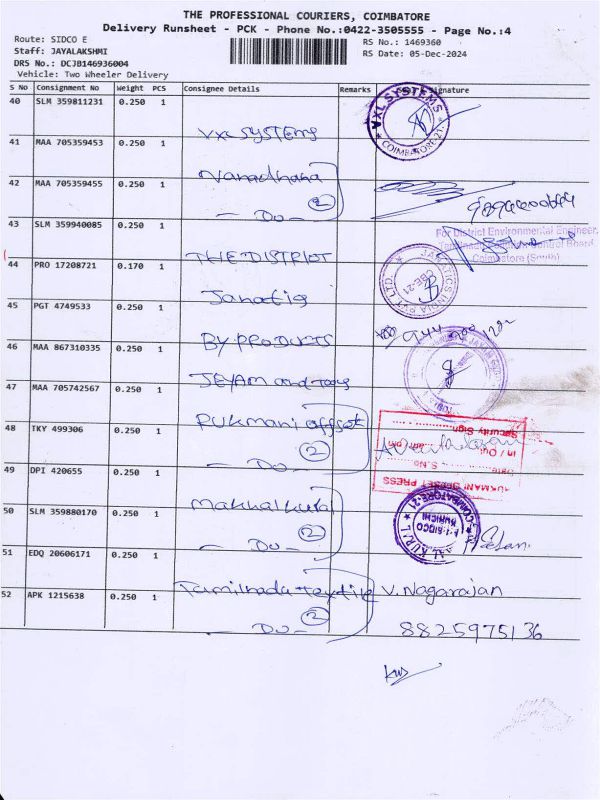 THE PROFESSIONAL COURIERS, COIMBATORE
Delivery Runsheet - PCK - Phone No.:0422-3505555 - Page No.:4
Route: SIDCO E
RS No.: 1469360
Staff: JAYALAKSHMI
RS Date: 05-Dec-2024
DRS No.: DCJB146936004
Vehicle: Two Wheeler Delivery
S No Consignment No Weight PCS Consignee Details Remarks Signature
40 SLM 359811231 0.250 1 VXL SYSTEMS
VXL SYSTEMS COIMBATORE-21
41 MAA 705359453 0.250 1
42 MAA 705359455 0.250 1 - Do -
2
43 SLM 359940085 0.250 1 THE DISTRICT
For District Environmental Engineer,
Coimbatore (South)
44 PRO 17208721 0.170 1
CBE-21
45 PGT 4749533 0.250 1 BY PRODUCTS
46 MAA 867310335 0.250 1 JEYAM and tools
47 MAA 705742567 0.250 1 RUKMANI offset
48 TKY 499306 0.250 1 - Do -
2
Security Sign
In / Out
S.No
Date
RUKMANI OFFSET PRESS
49 DPI 420655 0.250 1
50 SLM 359880170 0.250 1 - Do -
2
SIDCO
KURICHI
COIMBATORE-21
51 EDQ 20606171 0.250 1 Tamilnadu textile V. Nagarajan
52 APK 1215638 0.250 1 - Do - 8825975136
2